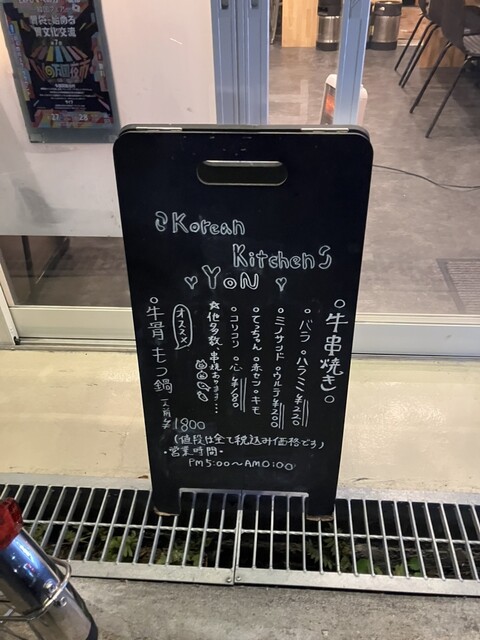 Korean
Kitchen
YoN
牛串焼き
・バラ・ハラミ ¥220
・ミノサンド・ウルテ ¥200
・てっちゃん・赤セン・キモ
・コリコリ・心 ¥180
☆他多数、串焼あります...
オススメ
牛骨もつ鍋 一人前 ¥1800
(値段は全て税込み価格です)
・営業時間・
PM5:00〜AM0:00
27
28